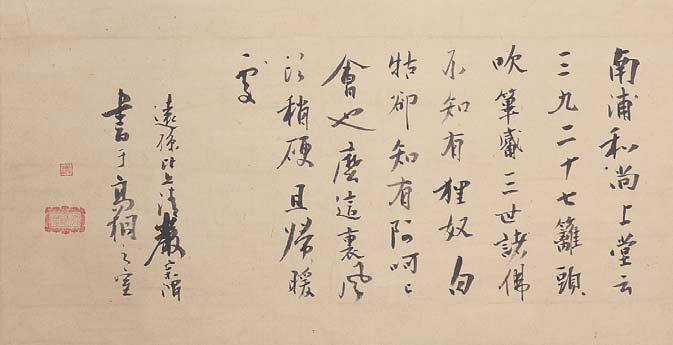 南浦和尚上堂云
三九二十七籬頭
吹篳 三世諸佛
不知有狸奴白
牯卻知有阿呵々
會也麼這裏風
頭稍硬且歸暖
處
遠孫比丘清巖宗渭
書于高桐之室